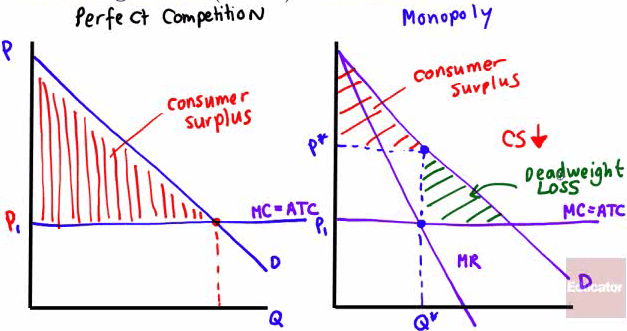 Perfect Competition
P
consumer
surplus
P₁
MC=ATC
D
Q
Monopoly
consumer
surplus
P*
CS↓
Deadweight
Loss
MC=ATC
P₁
MR
D
Q*
Educator